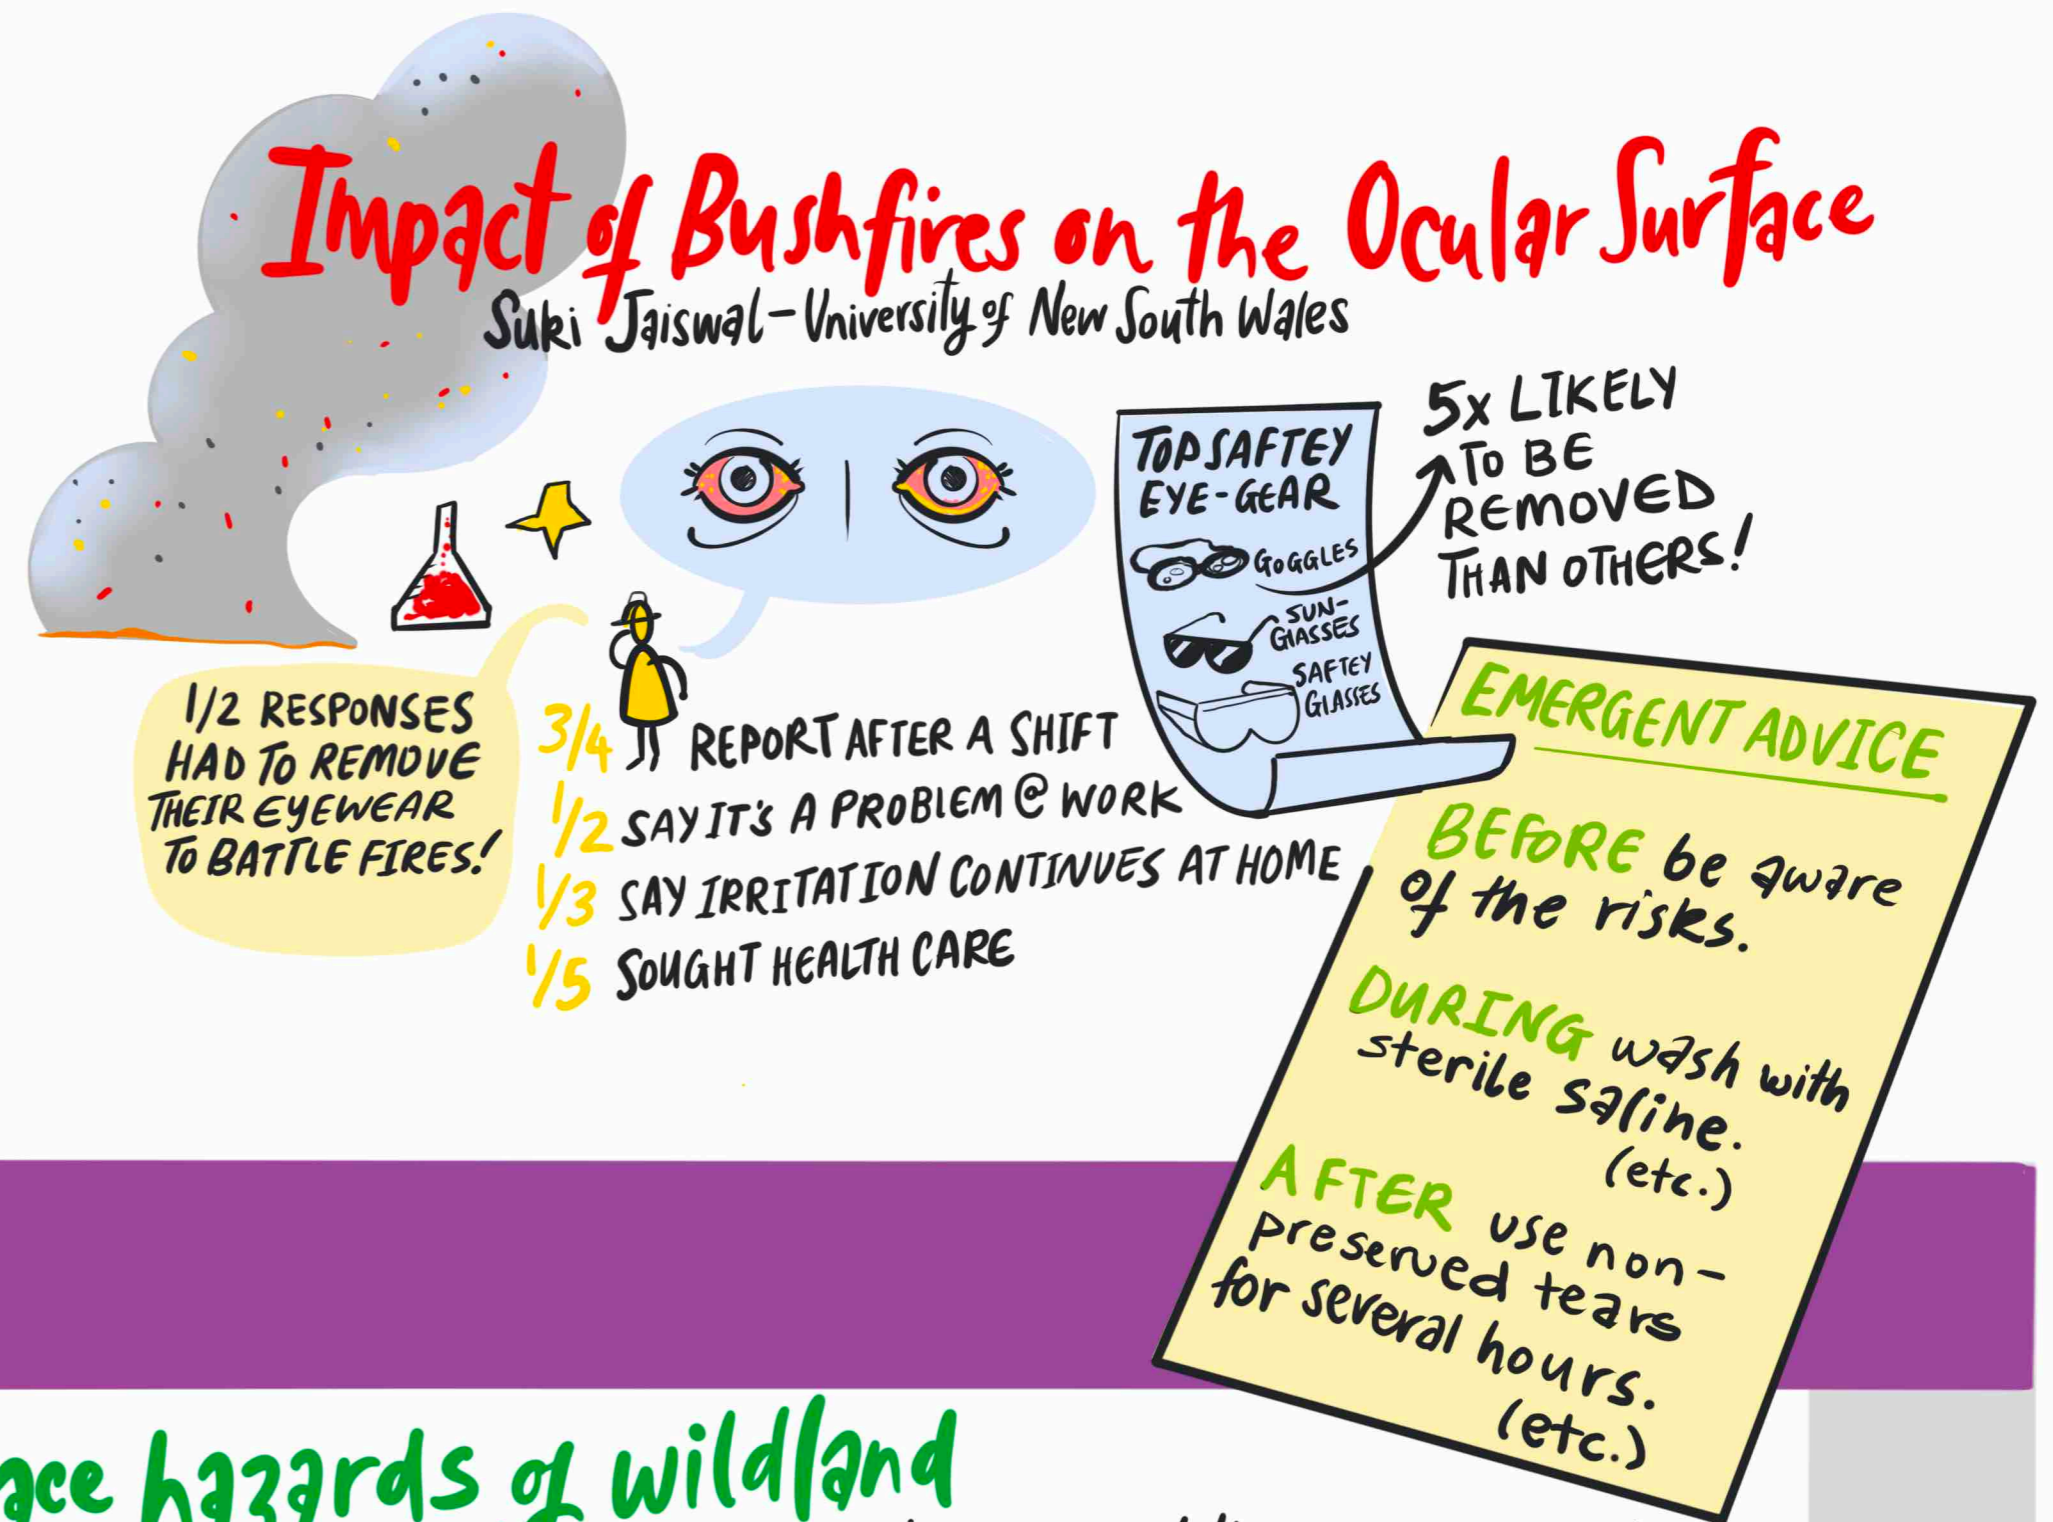 Impact of Bushfires on the Ocular Surface
Suki Jaiswal - University of New South Wales
TOP SAFTEY
EYE-GEAR
GOGGLES
SUN-
GLASSES
SAFTEY
GLASSES
5x LIKELY
TO BE
REMOVED
THAN OTHERS!
1/2 RESPONSES
HAD TO REMOVE
THEIR EYEWEAR
TO BATTLE FIRES!
3/4 REPORT AFTER A SHIFT
1/2 SAY IT'S A PROBLEM @ WORK
1/3 SAY IRRITATION CONTINUES AT HOME
1/5 SOUGHT HEALTH CARE
EMERGENT ADVICE
BEFORE be aware
of the risks.
DURING wash with
sterile saline.
(etc.)
AFTER use non-
preserved tears
for several hours.
(etc.)
ace hazards of wildland